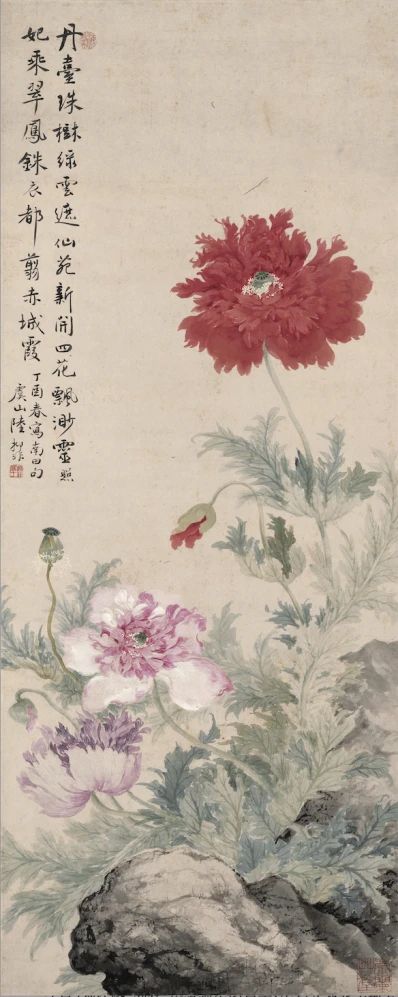 丹臺珠樹綠雲遮仙苑新開四花飄渺靈照
妃乘翠鳳銖衣都翦赤城霞
丁酉春寫南田句
虞山陸